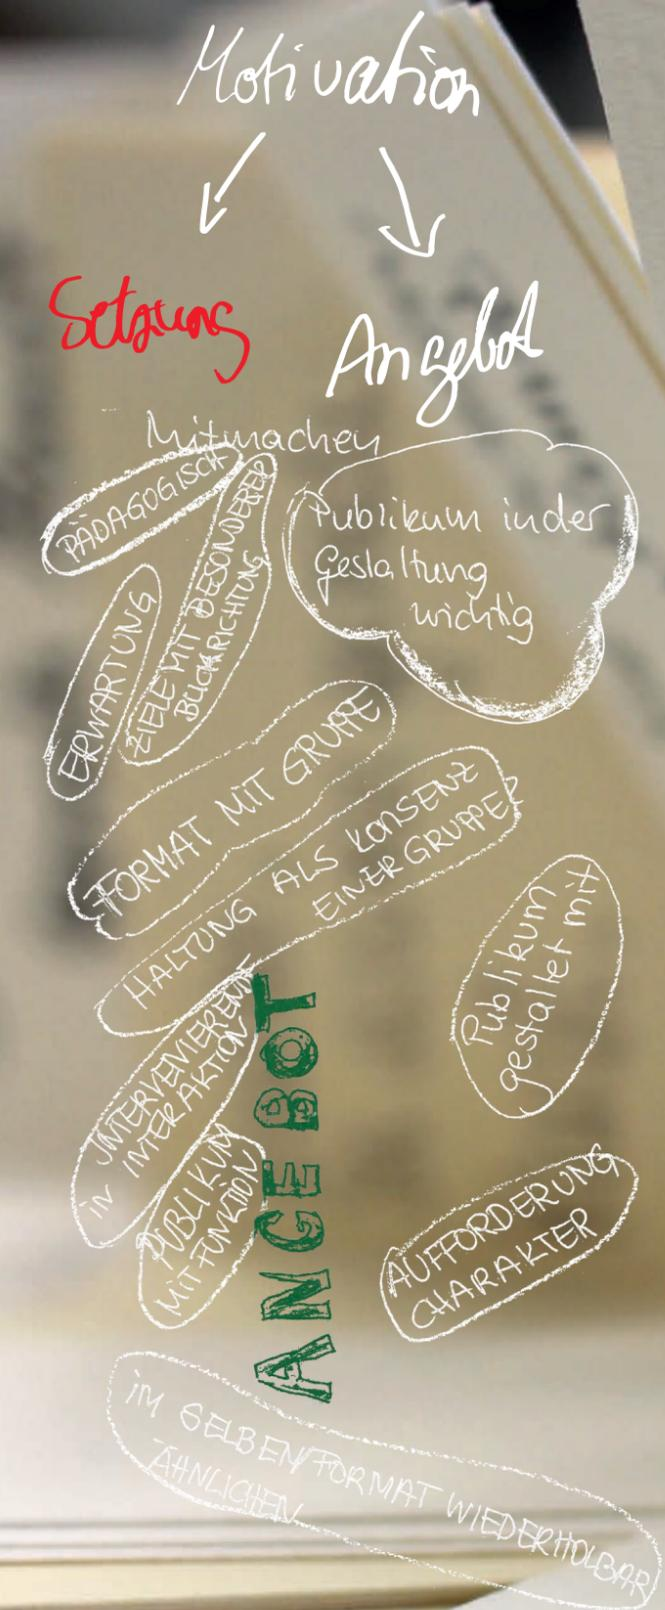 Motivation
Setzung
Angebot
Mitmachen
PÄDAGOGISCH
ZIELE MIT BESONDERER
BLICKRICHTUNG
Publikum in der
Gestaltung
wichtig
ERWARTUNG
FORMAT MIT GRUPPE
HALTUNG ALS KONSENZ
EINER GRUPPE
Publikum
gestaltet mit
INTERVENIERENDE
IN INTERAKTION
PUBLIKUM
MIT FUNKTION
ANGEBOT
AUFFORDERUNG
CHARAKTER
IM SELBEN/FORMAT WIEDERHOLBAR
ÄHNLICHEN